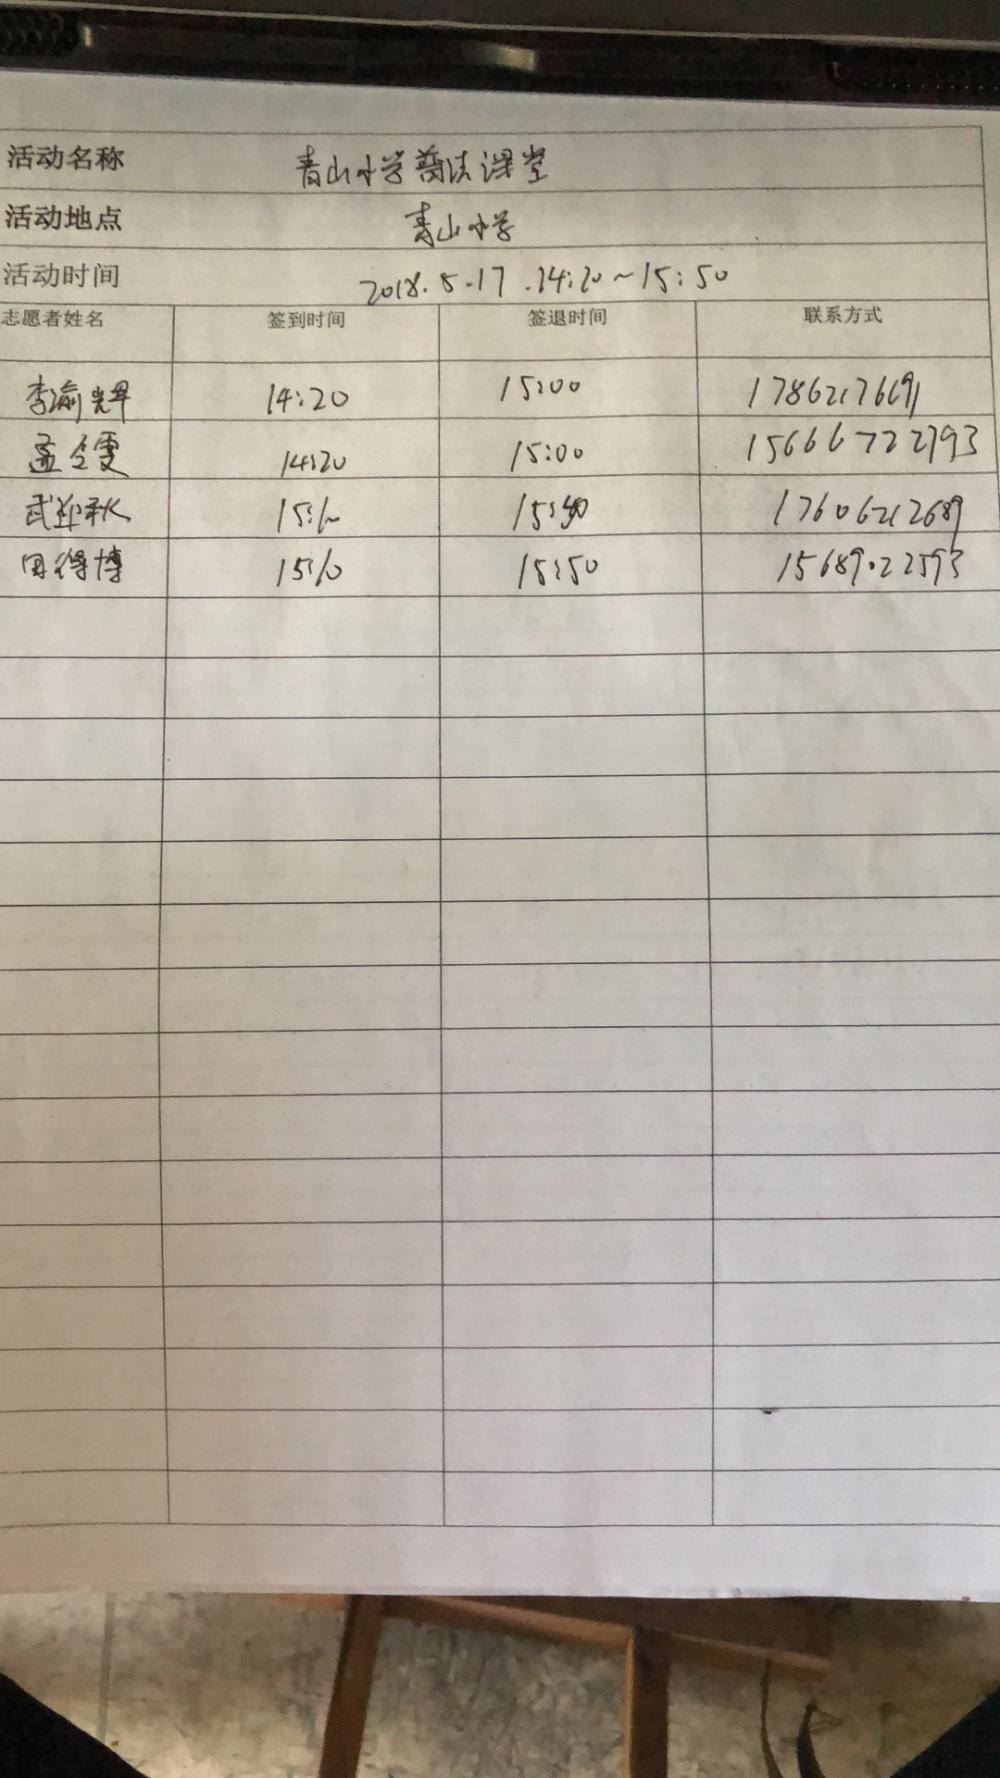 活动名称 青山小学普法课堂
活动地点 青山小学
活动时间 2018.5.17.14:20~15:50
志愿者姓名 签到时间 签退时间 联系方式
李瑜辉 14:20 15:00
孟令雯 14:20 15:00 15666722793
武迎秋 15:10 15:50 17606212689
田得博 15:10 15:50 15689022593